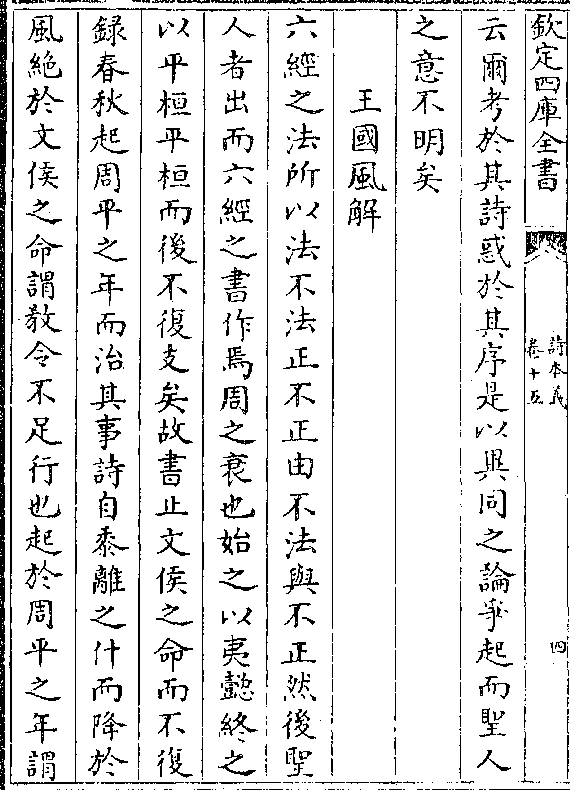 欽定四庫全書
詩本義
卷十五
四
云爾考於其詩惑於其序是以異同之論爭起而聖人
之意不明矣
王國風解
六經之法所以法不法正不正由不法與不正然後聖
人者出而六經之書作焉周之衰也始之以夷懿終之
以平桓平桓而後不復支矣故書止文侯之命而不復
録春秋起周平之年而治其事詩自黍離之什而降於
風絶於文侯之命謂教令不足行也起於周平之年謂